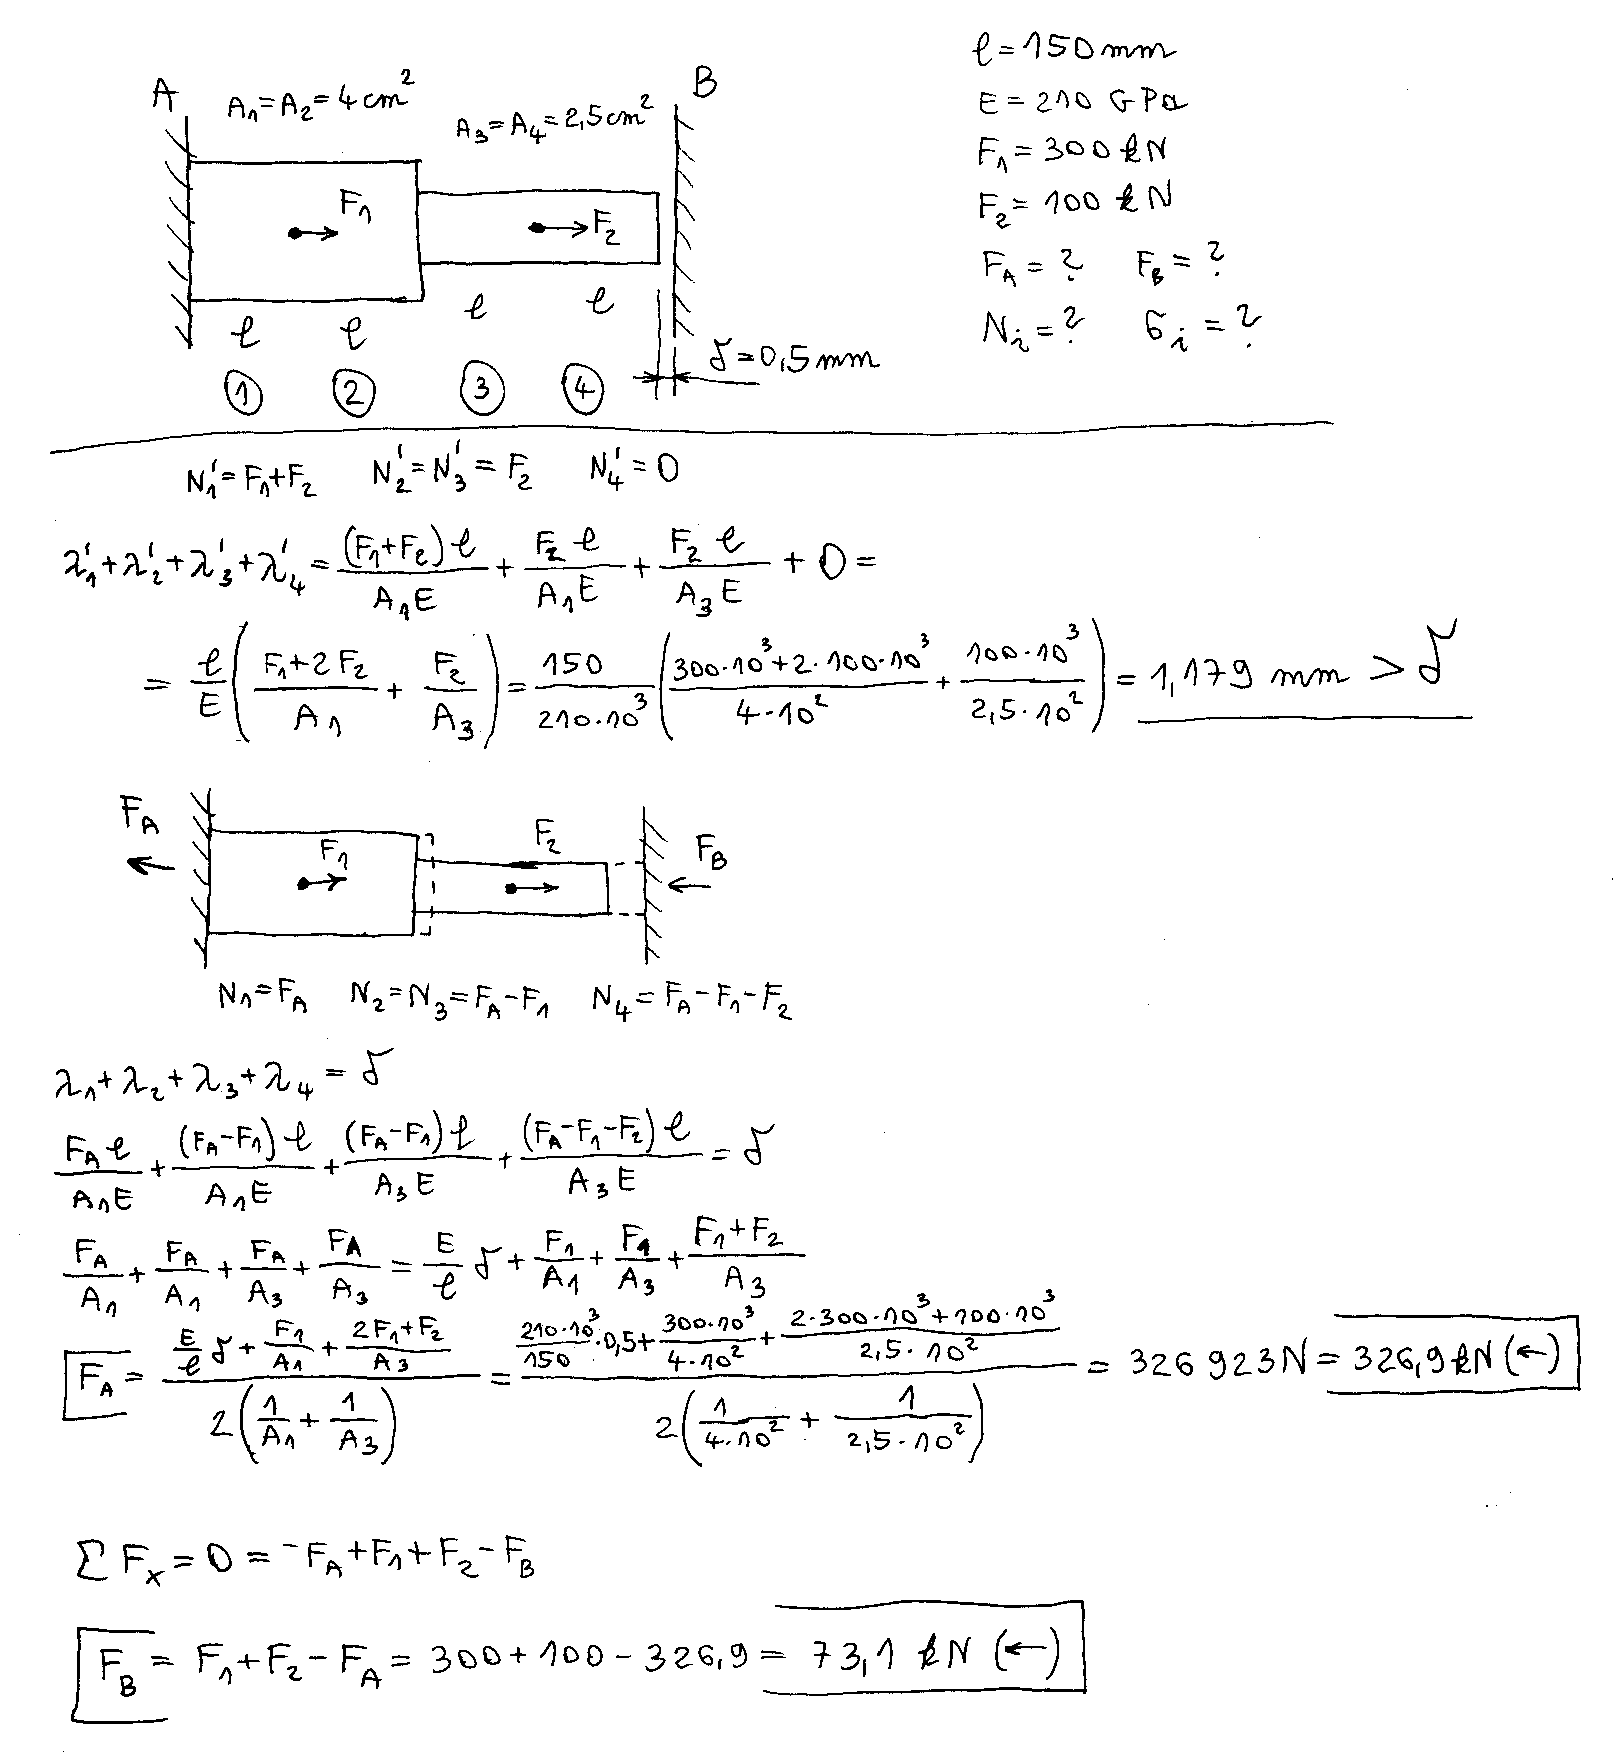 ℓ = 150 mm
A A₁=A₂=4cm² B
E = 210 GPa
A₃=A₄=2,5cm²
F₁ = 300 kN
F₁ F₂
F₂ = 100 kN
F_A = ? F_B = ?
ℓ ℓ ℓ ℓ
N_i = ? σ_i = ?
δ=0,5mm
① ② ③ ④
N₁'=F₁+F₂ N₂'=N₃'=F₂ N₄'=0
λ₁'+λ₂'+λ₃'+λ₄' = (F₁+F₂)ℓ/(A₁E) + F₂ℓ/(A₁E) + F₂ℓ/(A₃E) + 0 =
= ℓ/E ((F₁+2F₂)/A₁ + F₂/A₃) = 150/(210·10³) ((300·10³+2·100·10³)/(4·10²) + (100·10³)/(2,5·10²)) = 1,179 mm > δ
F_A F₁ F₂ F_B
N₁=F_A N₂=N₃=F_A-F₁ N₄=F_A-F₁-F₂
λ₁+λ₂+λ₃+λ₄ = δ
F_Aℓ/(A₁E) + (F_A-F₁)ℓ/(A₁E) + (F_A-F₁)ℓ/(A₃E) + (F_A-F₁-F₂)ℓ/(A₃E) = δ
F_A/A₁ + F_A/A₁ + F_A/A₃ + F_A/A₃ = E/ℓ δ + F₁/A₁ + F₁/A₃ + (F₁+F₂)/A₃
F_A = (E/ℓ δ + F₁/A₁ + (2F₁+F₂)/A₃)/(2(1/A₁ + 1/A₃)) = (210·10³/150·0,5 + 300·10³/(4·10²) + (2·300·10³+100·10³)/(2,5·10²))/(2(1/(4·10²) + 1/(2,5·10²))) = 326 923N = 326,9 kN (←)
ΣF_x = 0 = -F_A+F₁+F₂-F_B
F_B = F₁+F₂-F_A = 300+100-326,9 = 73,1 kN (←)